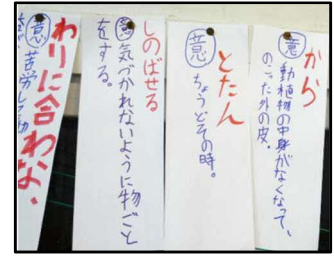 から
意 動植物の中身がなくなって、
のこった外の皮。
とたん
意 ちょうどその時。
しのばせる
意 気づかれないように物ごと
をする。
わりに合わな
意 苦労して